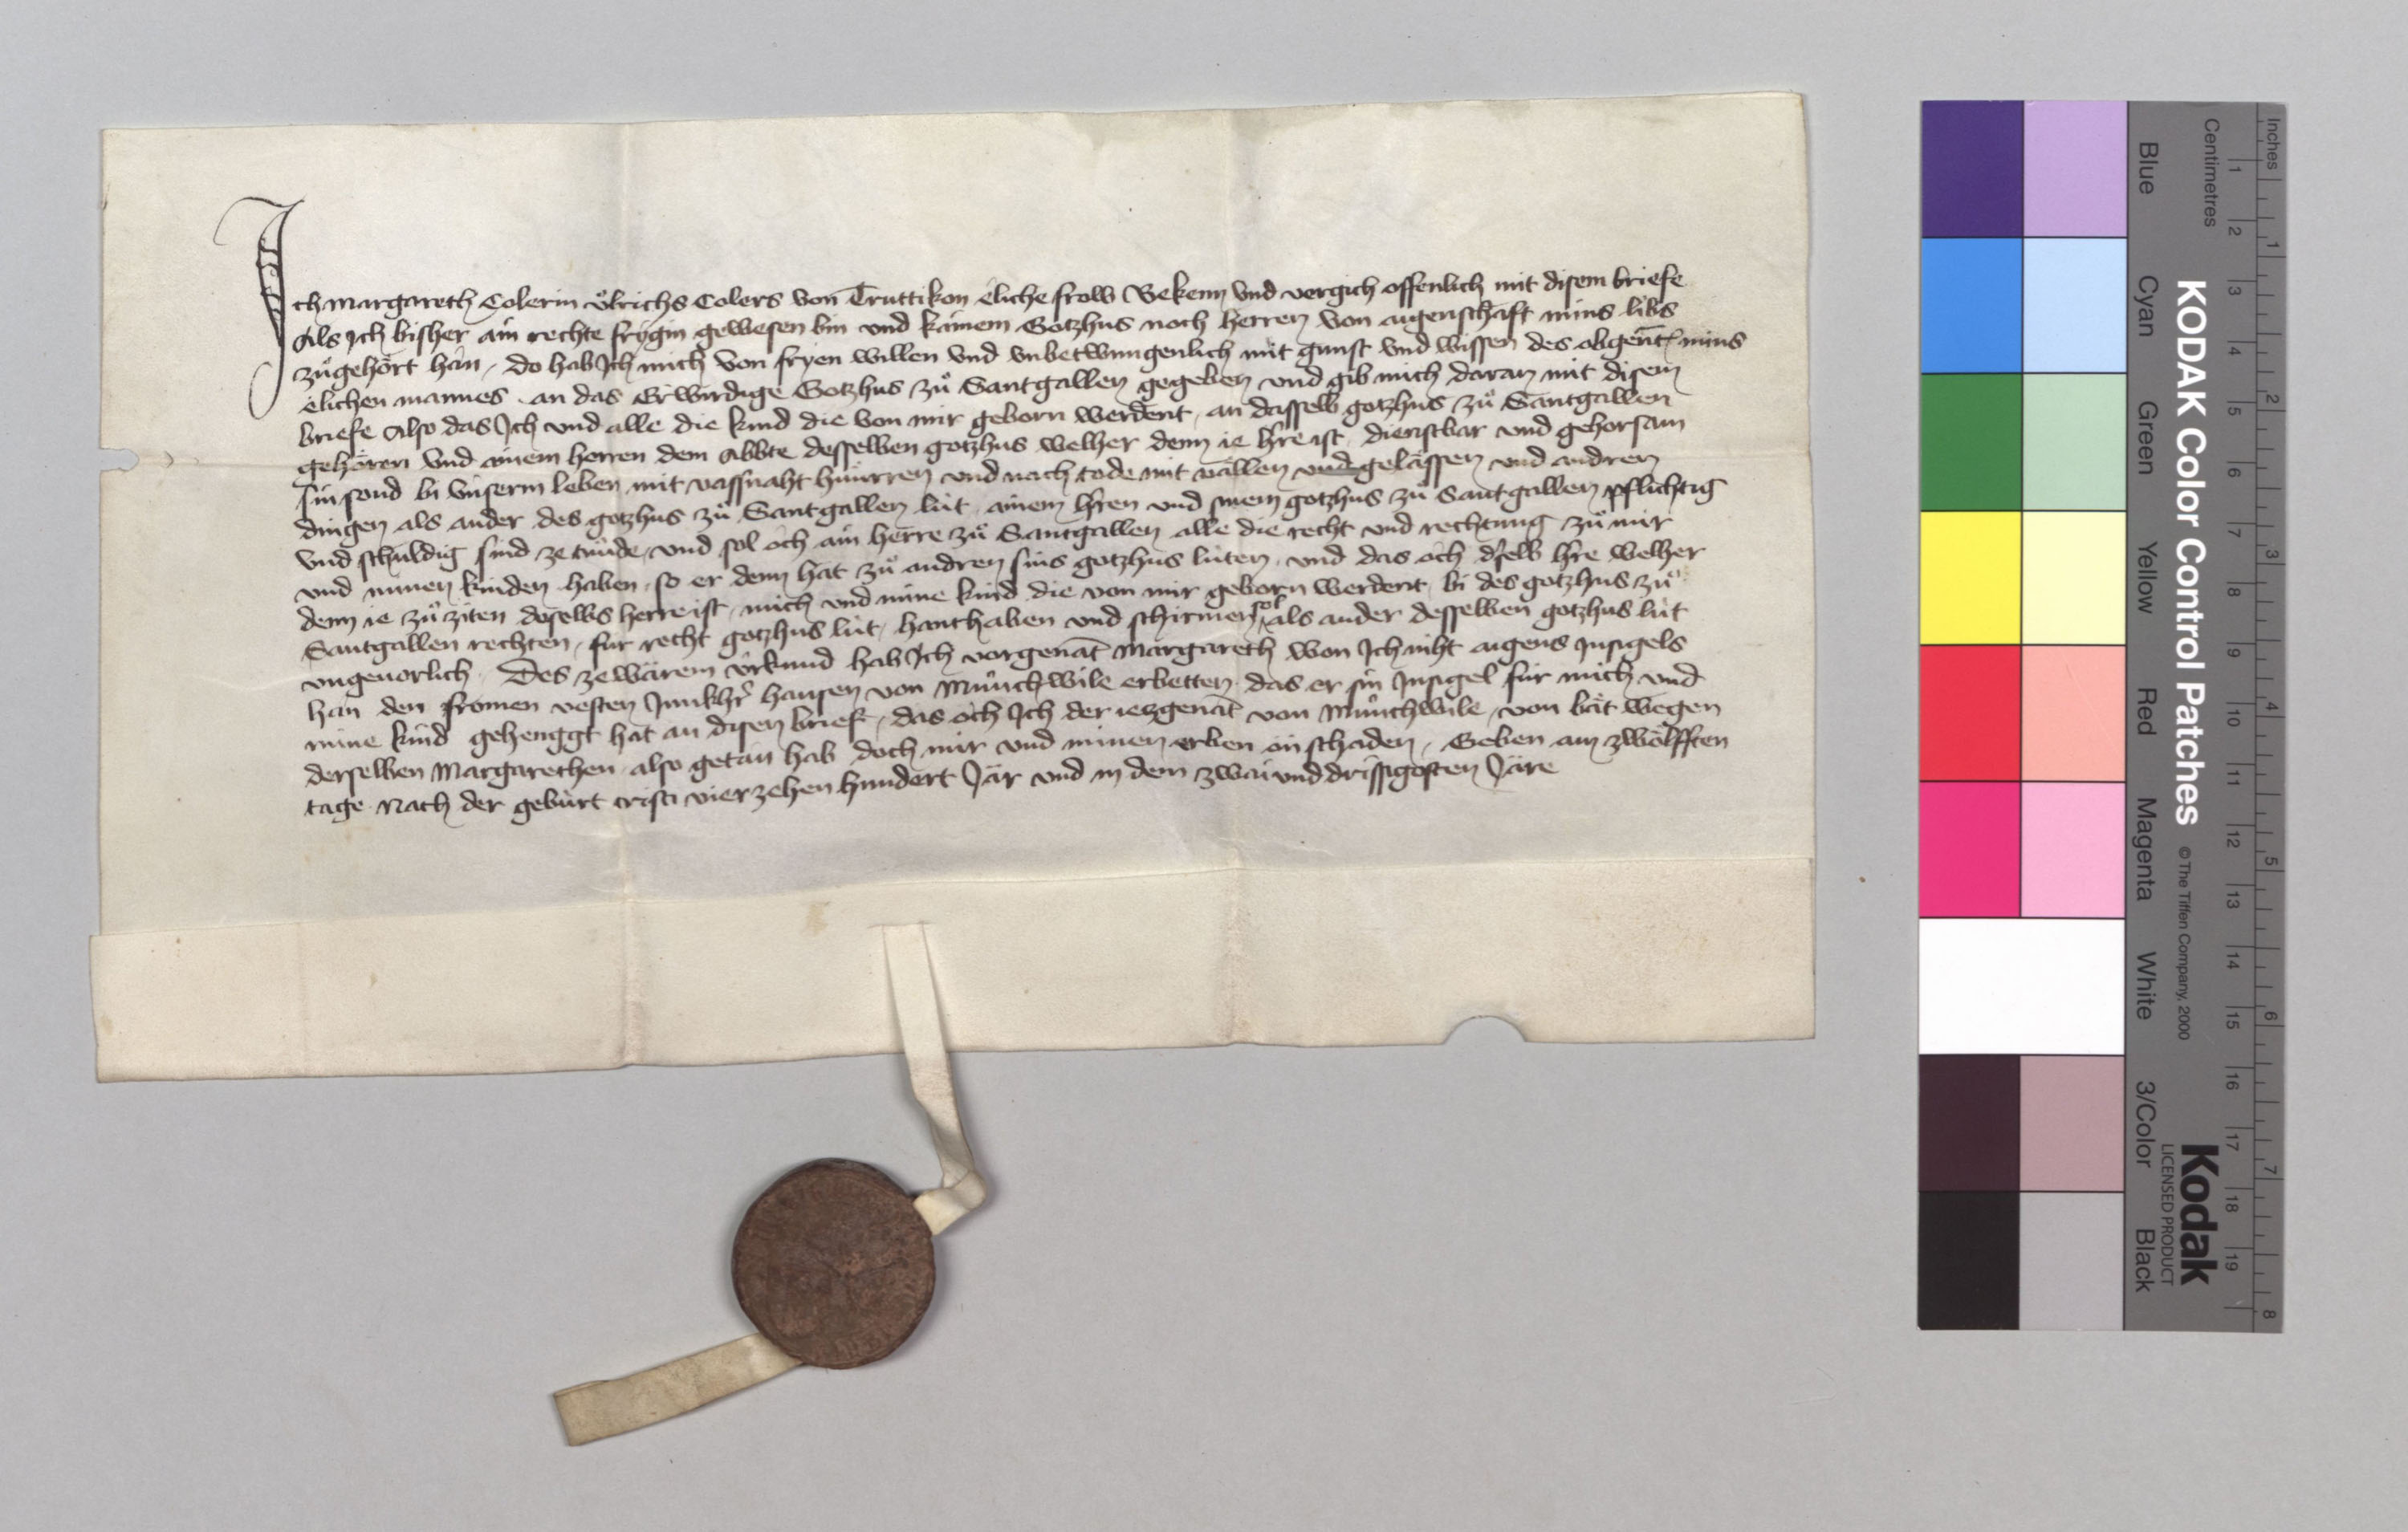 Ich Margareth Colerin Ůlrichs Colers von Truttikon eliche frow Bekenn und vergich offenlich mit disem briefe
Als Ich bisher ain rechte frygin gewesen bin und kainem Gotzhus noch herren von aigenschaft mins libs
zůgehört hän, do hab Ich mich von fryen willen und unbetwungenlich mit gunst und wissen des obgent mins
elichen mannes an das Erwirdige Gotzhus zů Santgallen gegeben und gib mich daran mit disem
briefe Also das Ich und alle die kind die von mir geborn werdent, an dasselb gotzhus zů Santgallen
gehören und ainem herren dem Abbte desselben gotzhus welher denn ie hre ist, dienstbar und gehorsam
sin sond bi unserm leben mit vassnaht hünrren und nach tode mit vällen und gelässen und andren
dingen als ander des gotzhus zů Santgallen lüt ainem hren und sinem gotzhus zů Santgallen pflichtig
und schuldig sind ze tünde, und sol öch ain herre zů Santgallen alle die recht und rechtung zů mir
und minen kinden haben, so er denn hat zů andren sins gotzhus lüten, und das öch dselb hre welher
denn ie zů ziten doselbs herre ist, mich und mine kind die von mir geborn werdent, bi des gotzhus zů
Santgallen rechten, für recht gotzhus lüt, hanthaben und schirmen sol als ander desselben gotzhus lüt
ungevorlich. Des ze wärem urkund hab Ich vorgenat Margareth won Ich niht aigens Insigels
han den fromen vesten Junkhr hansen von Münchwile erbetten das er sin Insigel für mich und
mine kind gehenggt hat an disen brief, das öch Ich der iezgenat von Münchwile, von bät wegen
derselben Margarethen also getän hab doch mir und minen erben ön schaden, Geben am zwölfften
tage nach der gebürt cristi vierzehen hundert Jär und in dem zwai und drissigosten Järe
KODAK Color Control Patches
© The Tiffen Company, 2000
Kodak
LICENSED PRODUCT
Blue
Cyan
Green
Yellow
Red
Magenta
White
3/Color
Black
Centimetres
1 2 3 4 5 6 7 8 9 10 11 12 13 14 15 16 17 18 19
Inches
1 2 3 4 5 6 7 8